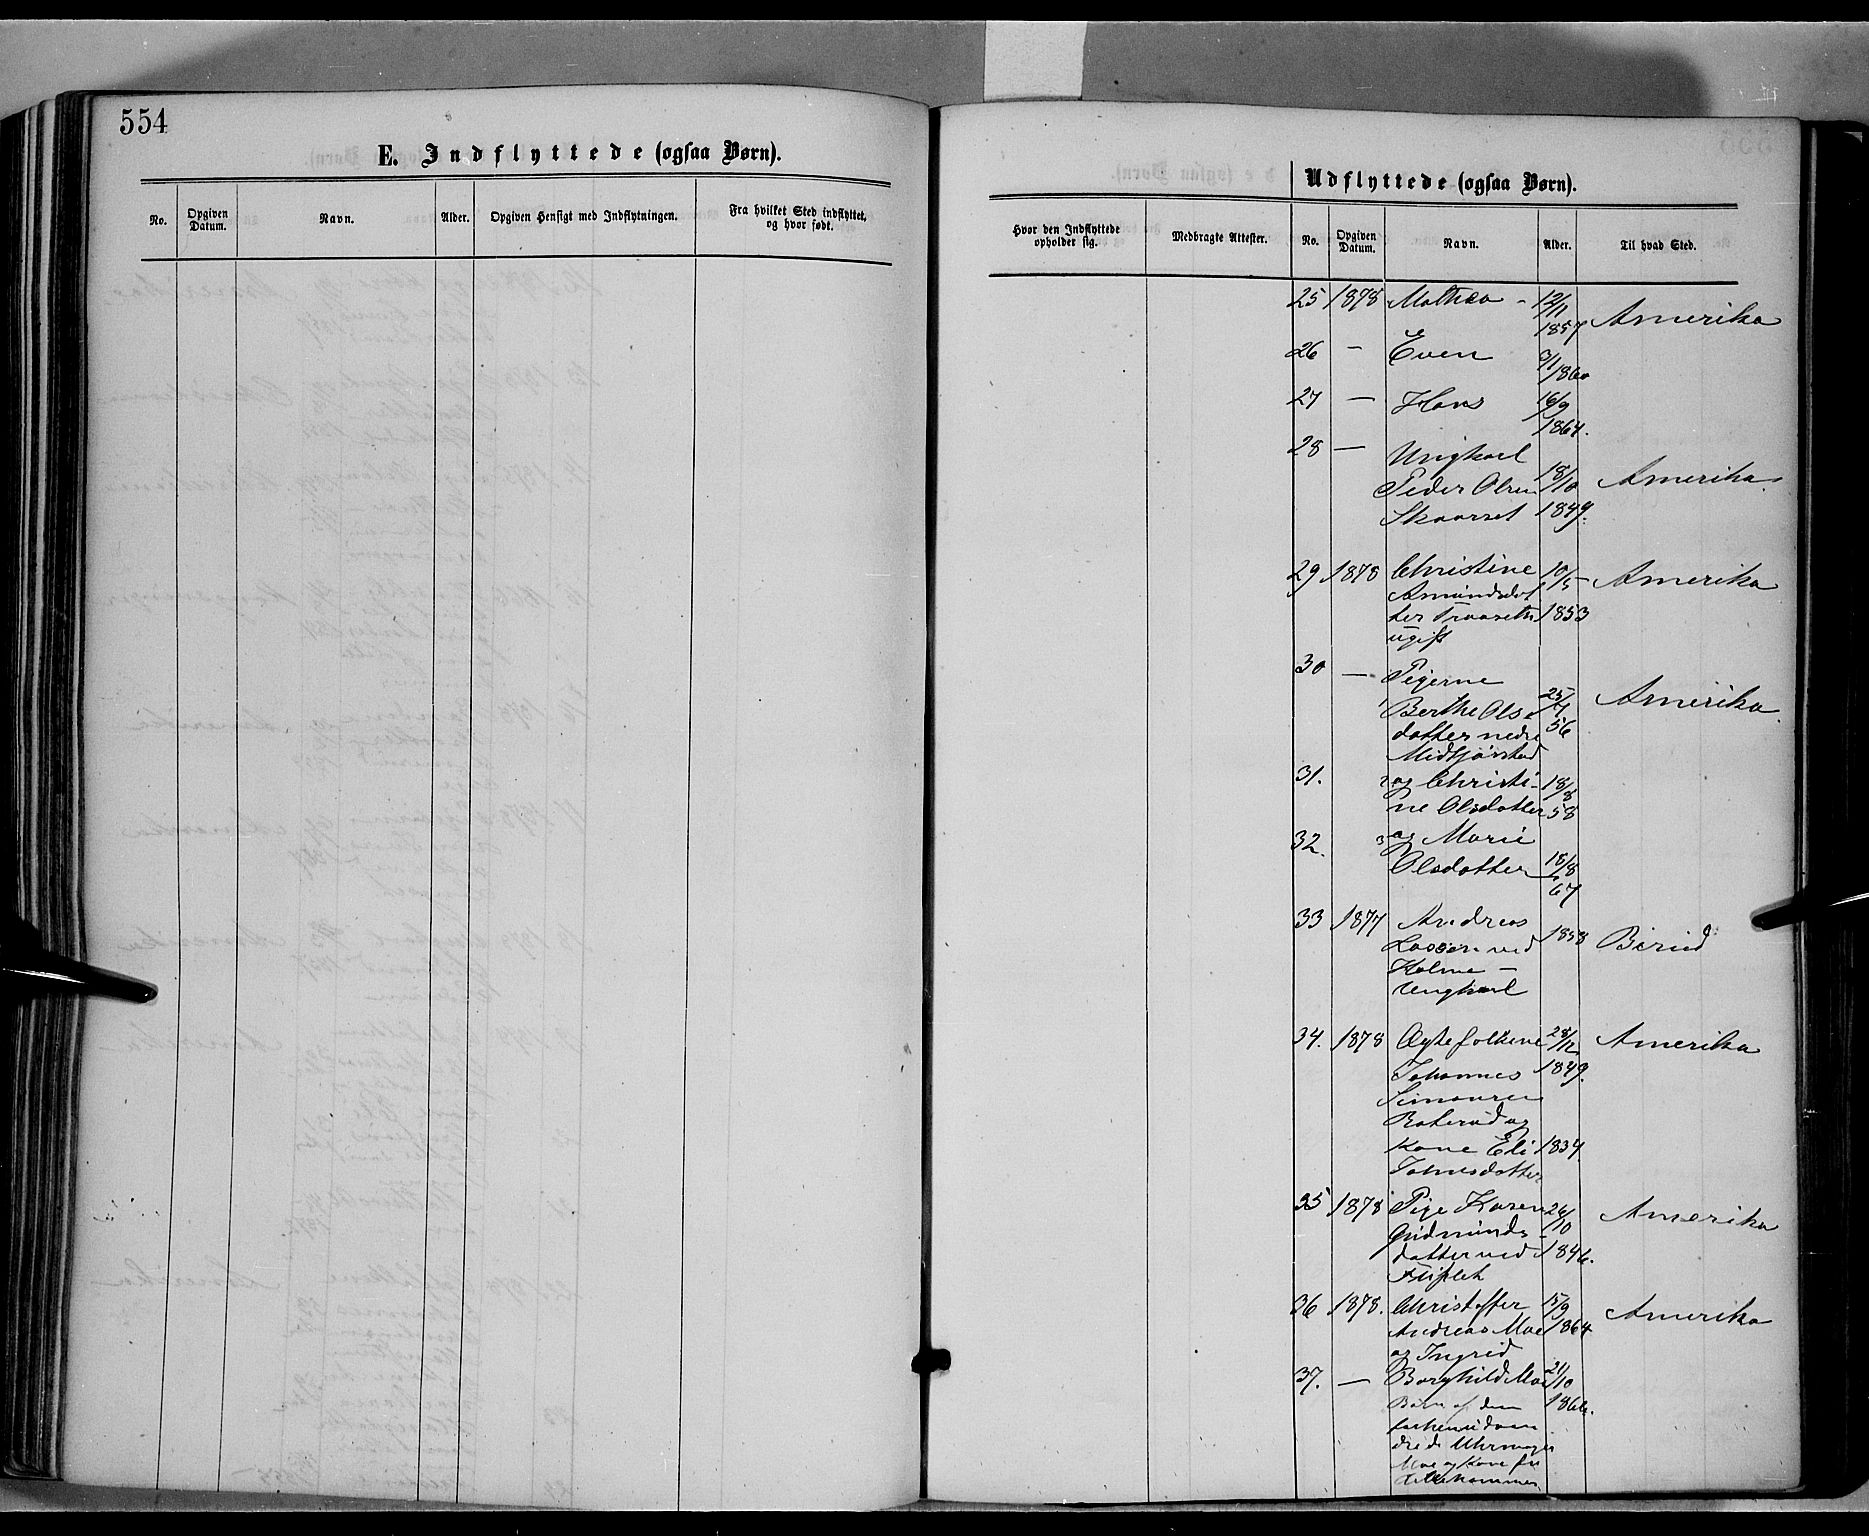 554
E. Indflyttede (ogsaa Børn).
No.
Opgiven Datum.
Navn.
Alder.
Opgiven Hensigt med Indflytningen.
Fra hvilket Sted indflyttet, og hvor født.
Udflyttede (ogsaa Børn).
Hvor den Indflyttede opholder sig.
Medbragte Attester.
No.
Opgiven Datum.
Navn.
Alder.
Til hvad Sted.
25 1878 Mathea - 12/11 Amerika
1857
26 — Even 3/1
1860
27 — Hans 16/9
1864.
28 — Ungkarl
Peder Olsen 18/10 Amerika
Skaarset 1849.
29 1878 Christine 10/5 Amerika
Amundsdot
ter Traaseth 1853
ugift
30 — Pigerne
1 Berthe Ols 25/7 Amerika
datter nedre 56
Midtjørstad
31. 2 og Christi- 18/8
ne Olsdatter 58
32. 3 og Marie
Olsdatter 18/8
67
33 1877 Andreas 1858 Birid
Lassen ved
Holme -
Ungkarl
34. 1878 Ægtefolkene 28/12 Amerika
Johannes 1849.
Simonsen
Roterud og
Kone Eli 1834
Johnsdatter
35 1878 Pige Karen 26/10 Amerika
Gudmunds-
datter ved 1846.
Fliflet
36 1878. Christoffer 15/9 Amerika
Andreas Moe 1864
og Ingrid
37. — Borghild Moe 21/10
Børn af den 1866.
forhenudvan
drede Uhrmager
Moe og Kone fra
Lillehammer